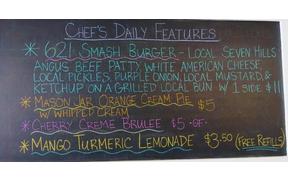 CHEF'S DAILY FEATURES
* 621 SMASH BURGER - LOCAL SEVEN HILLS
ANGUS BEEF PATTY, WHITE AMERICAN CHEESE,
LOCAL PICKLES, PURPLE ONION, LOCAL MUSTARD, &
KETCHUP ON A GRILLED LOCAL BUN W/ 1 SIDE $11
* MASON JAR ORANGE CREAM PIE $5
W/ WHIPPED CREAM
* CHERRY CREME BRULEE $5 -GF-
* MANGO TURMERIC LEMONADE $3.50 (FREE REFILLS)